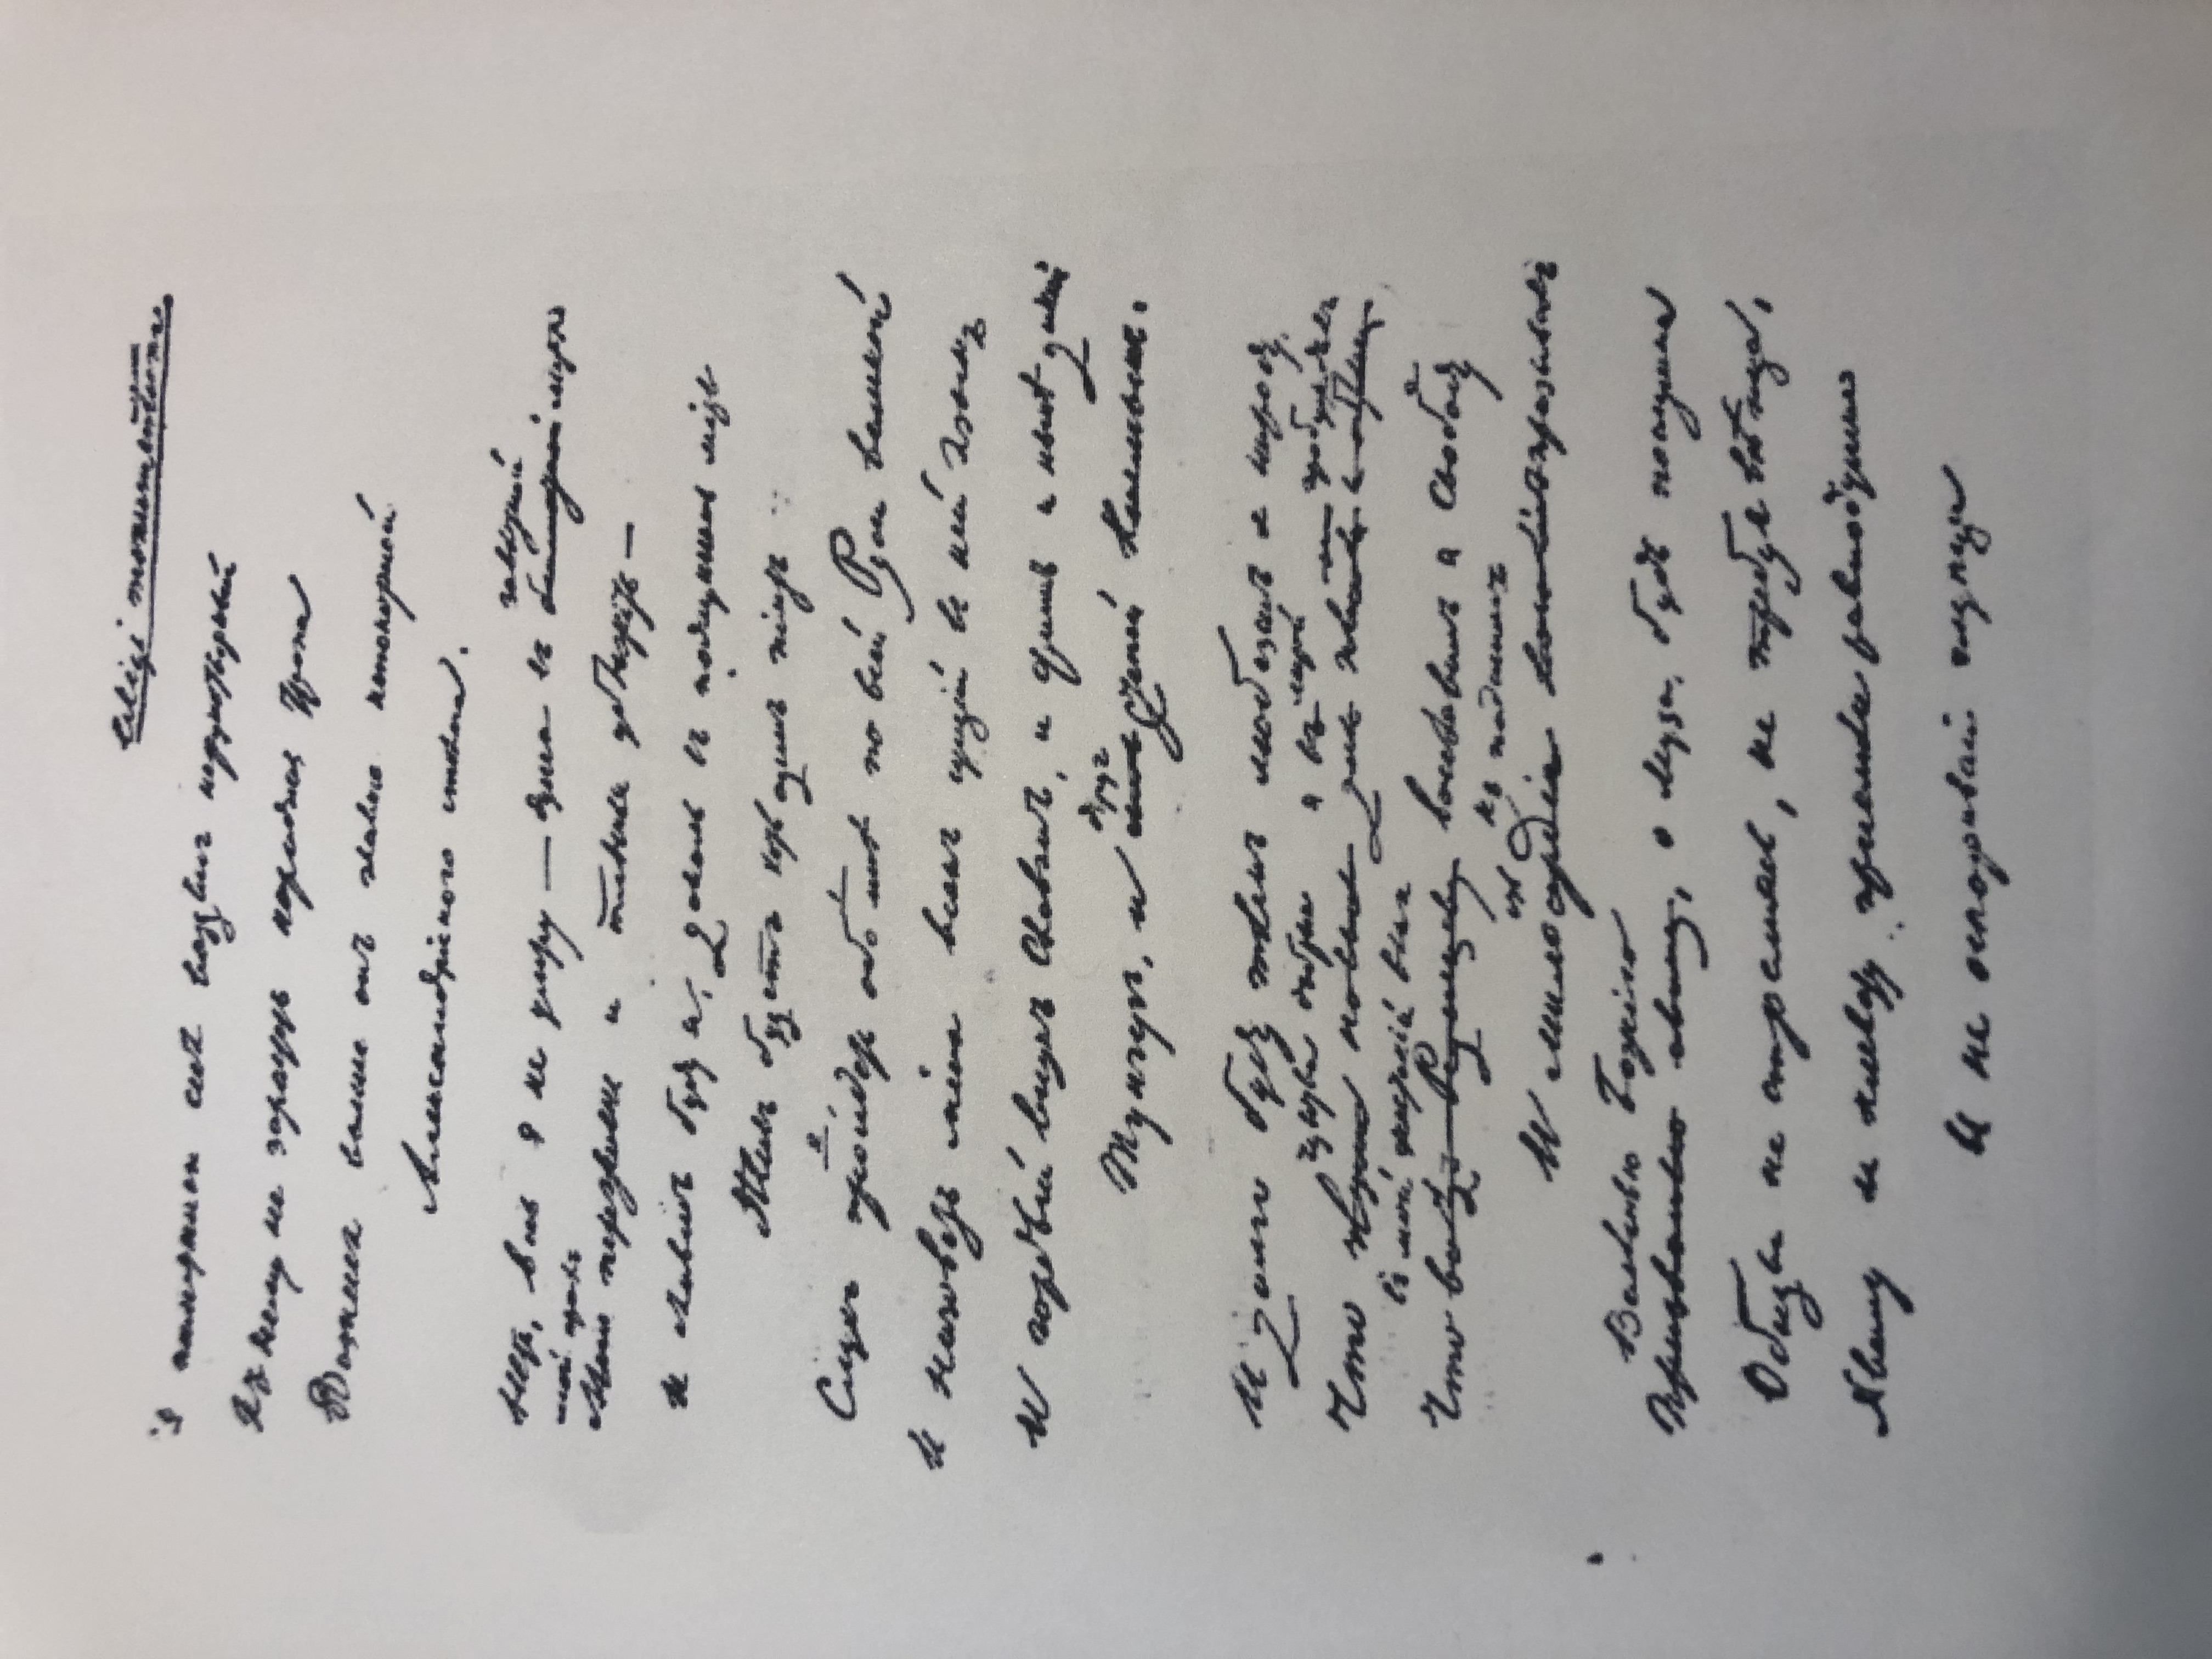 Exegi monumentum
Я памятникъ себѣ воздвигъ нерукотворный
Къ нему не заростетъ народная тропа
Вознесся выше онъ главою непокорной
Александрійского столпа.
завѣтной
Нѣтъ, весь я не умру — душа въ безсмертной лирѣ
мой прахъ
Меня переживетъ и тлѣнья убѣжитъ —
И славенъ буду я, доколь въ подлунномъ мірѣ
Живъ будетъ хоть одинъ піитъ
Слухъ пройдетъ обо мнѣ по всей Руси великой
И назоветъ меня всякъ сущій въ ней языкъ
И гордый внукъ Славянъ, и Финнъ и нынѣ дикій
другъ
Тунгузъ, и сынъ степей Калмыкъ.
И долго буду тѣмъ любезенъ я народу
чувства добрыя я лирой пробуждалъ
Что звуки новые для пѣсенъ я обрѣлъ
въ мой жестокій вѣкъ
Что вслѣдъ Радищеву возславилъ я свободу
къ падшимъ
И милосердіе воспѣлъ призывалъ
Велѣнью Божію
Призванью своему, о муза, будь послушна
Обиды не страшась, не требуя вѣнца,
Хвалу и клевету пріемли равнодушно
И не оспоривай глупца